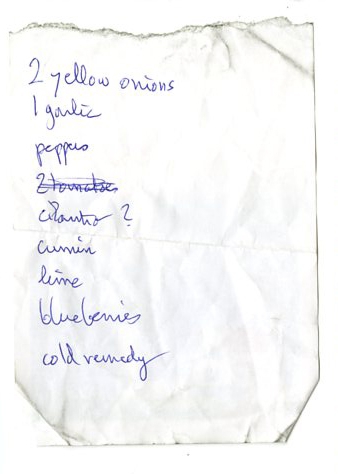 2 yellow onions
1 garlic
peppers
2 tomatoes
cilantro ?
cumin
lime
blueberries
cold remedy